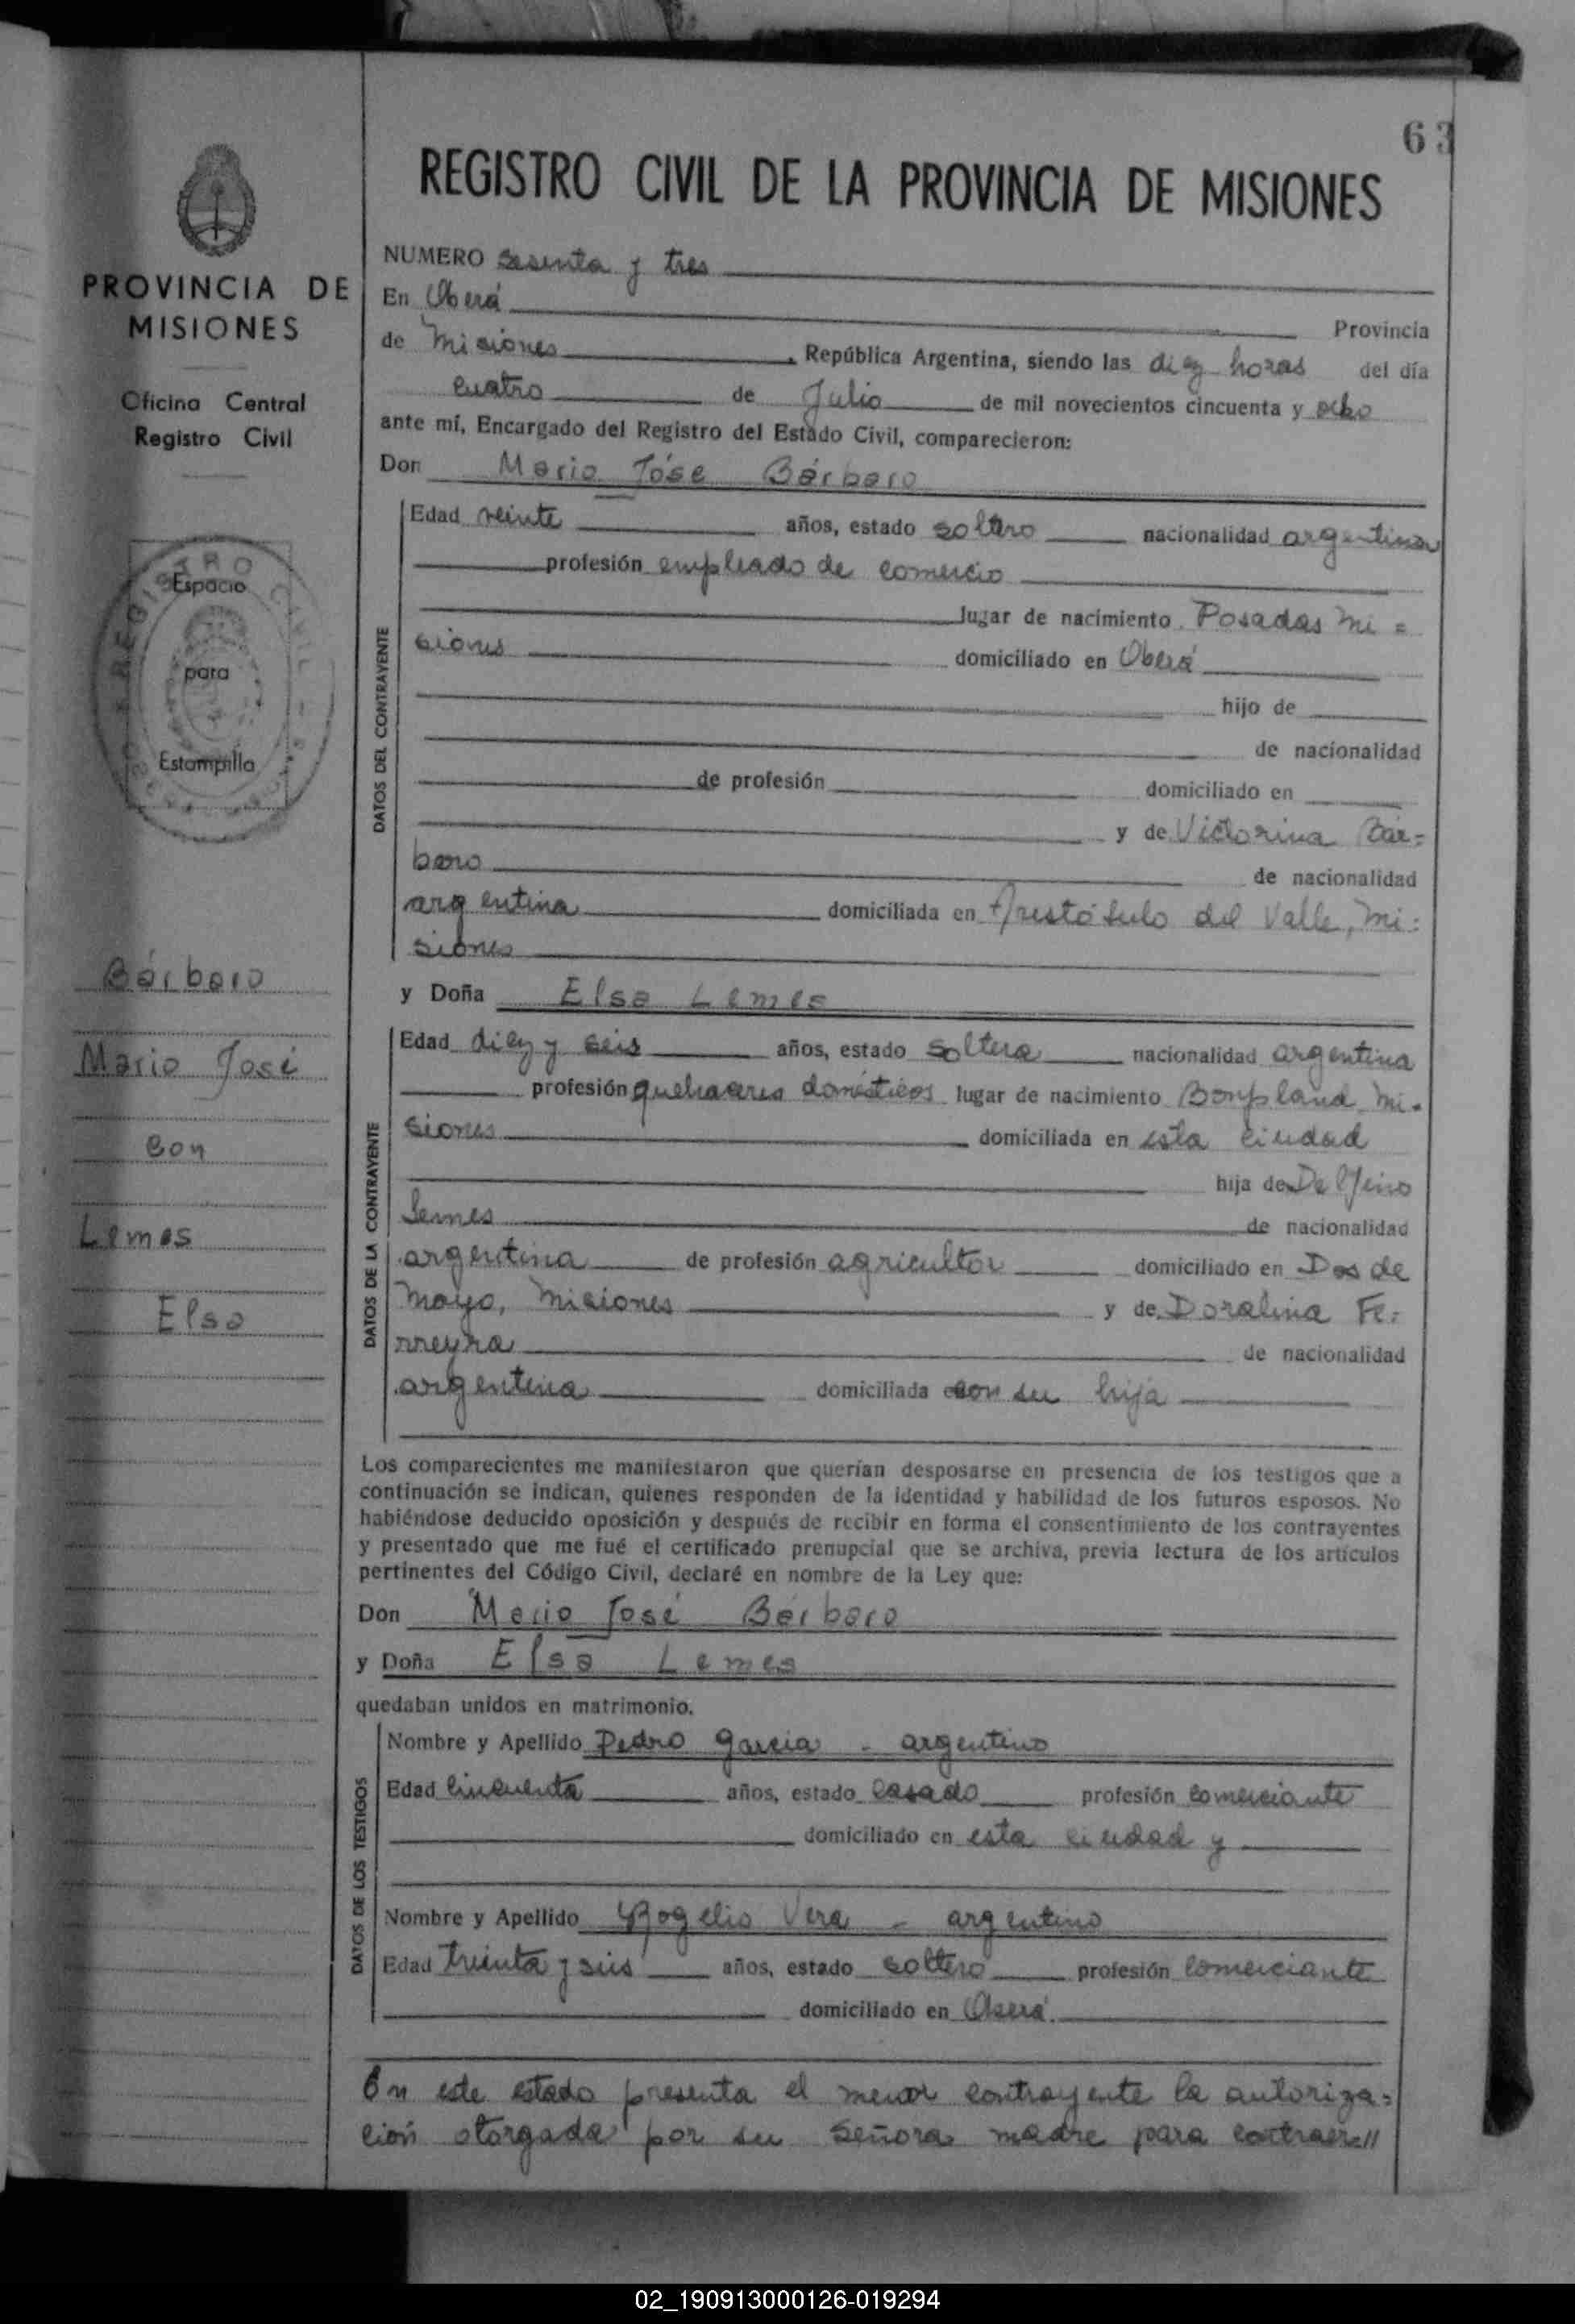 63
REGISTRO CIVIL DE LA PROVINCIA DE MISIONES
PROVINCIA DE
MISIONES
Oficina Central
Registro Civil
REGISTRO CIVIL
Espacio
para
Estampilla
Bárbaro
Mario José
con
Lemes
Elsa
NUMERO sesenta y tres
En Oberá Provincia
de Misiones, República Argentina, siendo las diez horas del día
cuatro de Julio de mil novecientos cincuenta y ocho
ante mí, Encargado del Registro del Estado Civil, comparecieron:
Don Mario Jóse Bárbaro
DATOS DEL CONTRAYENTE
Edad veinte años, estado soltero nacionalidad argentina
profesión empleado de comercio
lugar de nacimiento Posadas Mi=
siones domiciliado en Oberá
hijo de
de nacionalidad
de profesión domiciliado en
y de Victorina Bár=
baro de nacionalidad
argentina domiciliada en Aristóbulo del Valle, Mi=
siones
y Doña Elsa Lemes
DATOS DE LA CONTRAYENTE
Edad diez y seis años, estado soltera nacionalidad argentina
profesión quehaceres domésticos lugar de nacimiento Bonpland Mi=
siones domiciliada en esta ciudad
hija de Delfino
Lemes de nacionalidad
argentina de profesión agricultor domiciliado en Dos de
Mayo, Misiones y de Doralina Fe=
rreyra de nacionalidad
argentina domiciliada con su hija
Los comparecientes me manifestaron que querían desposarse en presencia de los testigos que a
continuación se indican, quienes responden de la identidad y habilidad de los futuros esposos. No
habiéndose deducido oposición y después de recibir en forma el consentimiento de los contrayentes
y presentado que me fué el certificado prenupcial que se archiva, previa lectura de los artículos
pertinentes del Código Civil, declaré en nombre de la Ley que:
Don Mario José Bárbaro
y Doña Elsa Lemes
quedaban unidos en matrimonio.
DATOS DE LOS TESTIGOS
Nombre y Apellido Pedro Garcia - argentino
Edad cincuenta años, estado casado profesión comerciante
domiciliado en esta ciudad y
Nombre y Apellido Rogelio Vera - argentino
Edad treinta y seis años, estado soltero profesión comerciante
domiciliado en Oberá.
En este estado presenta el menor contrayente la autoriza=
ción otorgada por su señora madre para contraer//
02_190913000126-019294